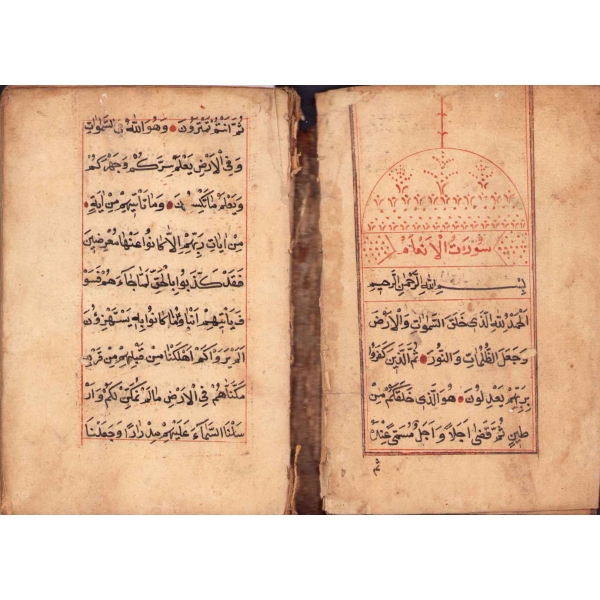 سورت الانعام
بسم الله الرحمن الرحيم
الحمد لله الذى خلق السموات والارض
وجعل الظلمات والنور ثم الذين كفروا
بربهم يعدلون هو الذى خلقكم من
طين ثم قضى اجلا واجل مسمى عنده
ثم
ثم انتم تمترون وهو الله فى السموات
وفى الارض يعلم سركم وجهركم
ويعلم ما تكسبون وما تاتيهم من اية
من ايات ربهم الا كانوا عنها معرضين
فقد كذبوا بالحق لما جاءهم فسو
ف ياتيهم انباؤا ما كانوا به يستهزؤن
الم يروا كم اهلكنا من قبلهم من قرن
مكناهم فى الارض ما لم نمكن لكم وار
سلنا السماء عليهم مدرارا وجعلنا